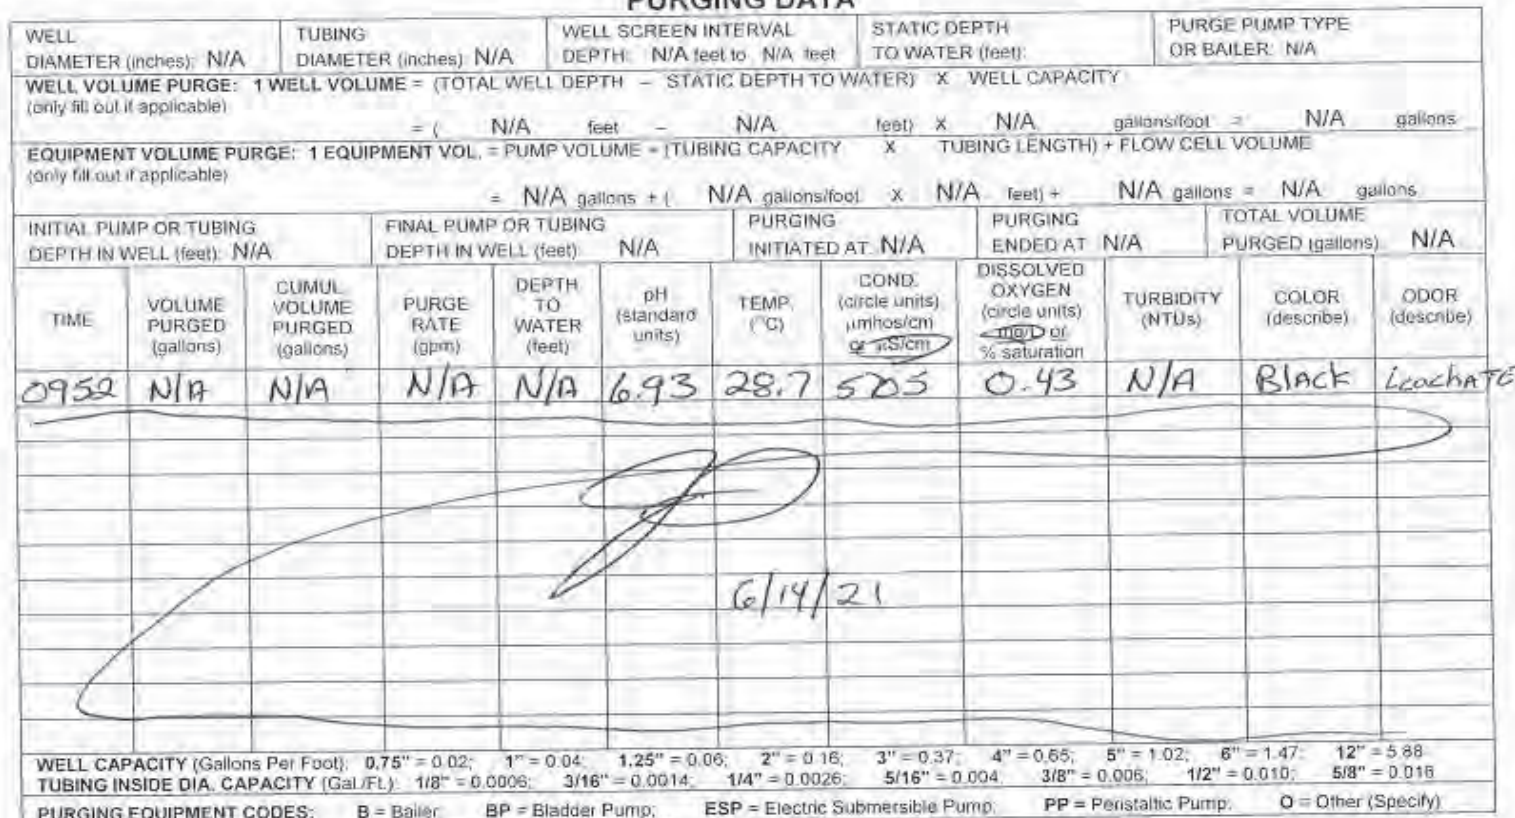 PURGING DATA
WELL
DIAMETER (inches): N/A
TUBING
DIAMETER (inches) N/A
WELL SCREEN INTERVAL
DEPTH: N/A feet to N/A feet
STATIC DEPTH
TO WATER (feet):
PURGE PUMP TYPE
OR BAILER: N/A
WELL VOLUME PURGE: 1 WELL VOLUME = (TOTAL WELL DEPTH – STATIC DEPTH TO WATER) X WELL CAPACITY
(only fill out if applicable)
= ( N/A feet – N/A feet) X N/A gallons/foot = N/A gallons
EQUIPMENT VOLUME PURGE: 1 EQUIPMENT VOL. = PUMP VOLUME + (TUBING CAPACITY X TUBING LENGTH) + FLOW CELL VOLUME
(only fill out if applicable)
= N/A gallons + ( N/A gallons/foot X N/A feet) + N/A gallons = N/A gallons
INITIAL PUMP OR TUBING
DEPTH IN WELL (feet): N/A
FINAL PUMP OR TUBING
DEPTH IN WELL (feet): N/A
PURGING
INITIATED AT: N/A
PURGING
ENDED AT: N/A
TOTAL VOLUME
PURGED (gallons): N/A
TIME
VOLUME
PURGED
(gallons)
CUMUL.
VOLUME
PURGED
(gallons)
PURGE
RATE
(gpm)
DEPTH
TO
WATER
(feet)
pH
(standard
units)
TEMP.
(°C)
COND.
(circle units)
µmhos/cm
or µS/cm
DISSOLVED
OXYGEN
(circle units)
mg/L or
% saturation
TURBIDITY
(NTUs)
COLOR
(describe)
ODOR
(describe)
0952 N/A N/A N/A N/A 6.93 28.7 5705 0.43 N/A Black LeachATE
6/14/21
WELL CAPACITY (Gallons Per Foot): 0.75" = 0.02; 1" = 0.04; 1.25" = 0.06; 2" = 0.16; 3" = 0.37; 4" = 0.65; 5" = 1.02; 6" = 1.47; 12" = 5.88
TUBING INSIDE DIA. CAPACITY (Gal./Ft.): 1/8" = 0.0006; 3/16" = 0.0014; 1/4" = 0.0026; 5/16" = 0.004; 3/8" = 0.006; 1/2" = 0.010; 5/8" = 0.016
PURGING EQUIPMENT CODES: B = Bailer; BP = Bladder Pump; ESP = Electric Submersible Pump; PP = Peristaltic Pump; O = Other (Specify)